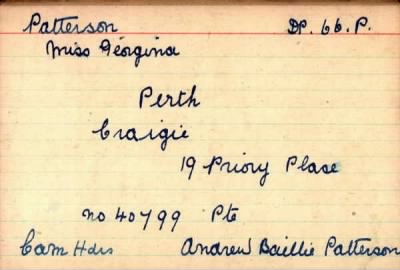 Patterson DP. 66. P.
Miss Georgina
Perth
Craigie
19 Priory Place
no 40799 Pte
Cam Hdrs Andrew Baillie Patterson